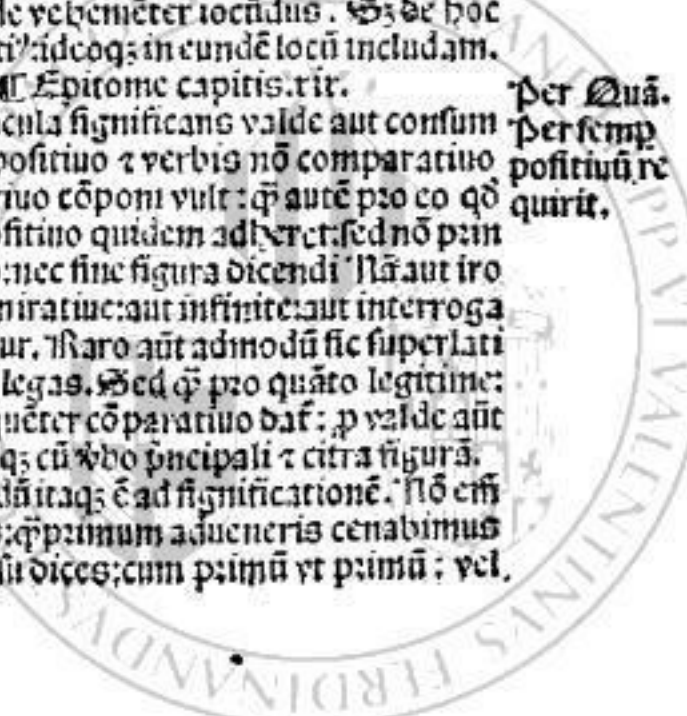 de vehemēter iocūdus. Sʒ de hoc
ideoqʒ in eundē locū includam.
¶ Epitome capitis.xix.
cula significans valde aut consum
positiuo ⁊ verbis nō comparatiuo
tiuo cōponi vult: q̄ȝ autē pro eo qđ
sitiuo quidem adheret: sed nō prin
: nec sine figura dicendi. Nā aut iro
miratiue: aut infinite: aut interroga
ur. Raro aūt admodū sic superlati
legas. Sed q̄ȝ pro quāto legitime:
uēter cōparatiuo dat̄: ꝓ valde aūt
qʒ cū v̄bo p̄ncipali ⁊ citra figurā.
dū itaqʒ ē ad significationē. Nō em̄
: q̄ȝprimum adueneris cenabimus
su dices: cum primū vt primū: vel
Per Quā.
Per semp̄
positiuū re
quirit.